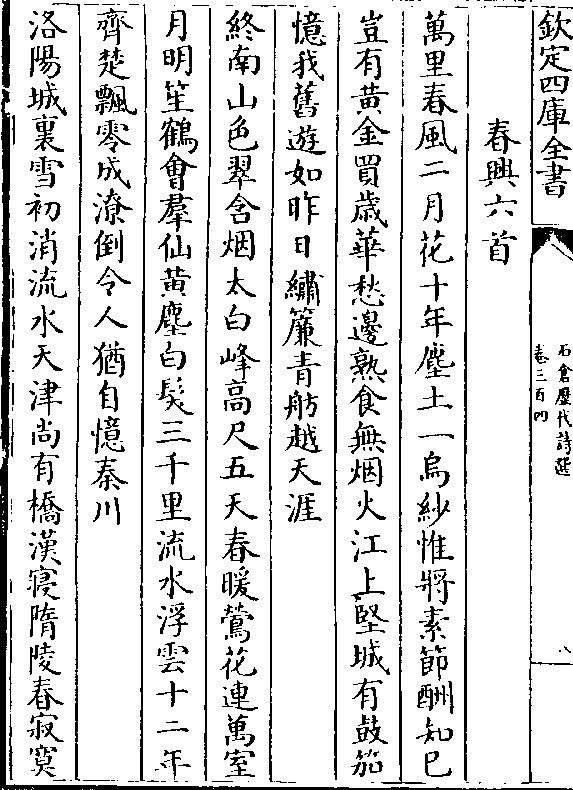 欽定四庫全書
石倉歷代詩選
卷三百四
八
春興六首
萬里春風二月花十年塵土一烏紗惟將素節酬知已
豈有黃金買歲華愁邊熟食無烟火江上堅城有鼓笳
憶我舊遊如昨日繡簾青舫越天涯
終南山色翠含烟太白峰高尺五天春暖鶯花連萬室
月明笙鶴會羣仙黃塵白髮三千里流水浮雲十二年
齊楚飄零成潦倒令人猶自憶秦川
洛陽城裏雪初消流水天津尚有橋漢寢隋陵春寂寞